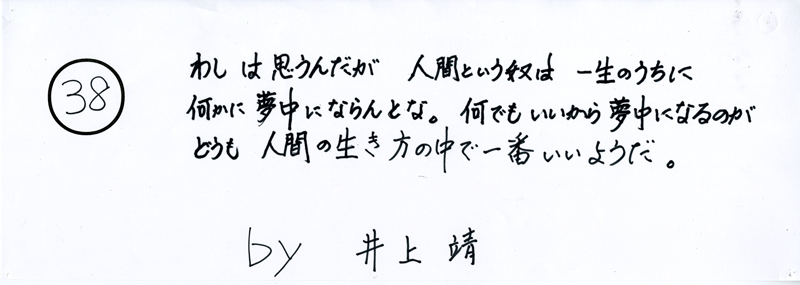 38
わしは思うんだが 人間という奴は 一生のうちに
何かに夢中にならんとな。何でもいいから夢中になるのが
どうも 人間の生き方の中で一番いいようだ。
by 井上 靖